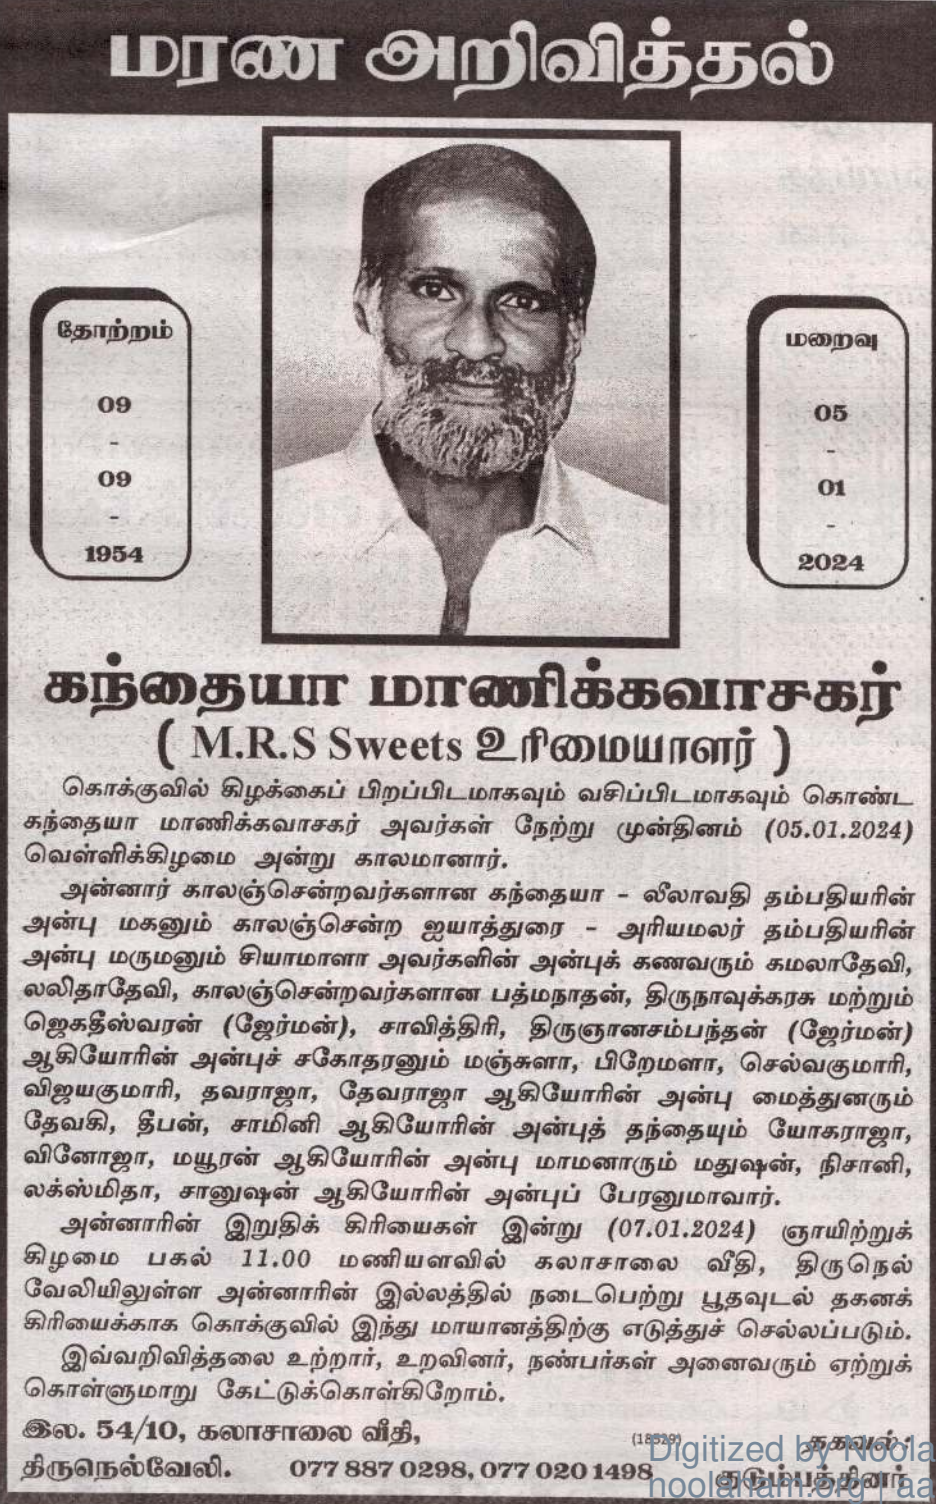 மரண அறிவித்தல்
தோற்றம்
09
-
09
-
1954
மறைவு
05
-
01
-
2024
கந்தையா மாணிக்கவாசகர்
( M.R.S Sweets உரிமையாளர் )
கொக்குவில் கிழக்கைப் பிறப்பிடமாகவும் வசிப்பிடமாகவும் கொண்ட
கந்தையா மாணிக்கவாசகர் அவர்கள் நேற்று முன்தினம் (05.01.2024)
வெள்ளிக்கிழமை அன்று காலமானார்.
அன்னார் காலஞ்சென்றவர்களான கந்தையா - லீலாவதி தம்பதியரின்
அன்பு மகனும் காலஞ்சென்ற ஐயாத்துரை - அரியமலர் தம்பதியரின்
அன்பு மருமனும் சியாமாளா அவர்களின் அன்புக் கணவரும் கமலாதேவி,
லலிதாதேவி, காலஞ்சென்றவர்களான பத்மநாதன், திருநாவுக்கரசு மற்றும்
ஜெகதீஸ்வரன் (ஜேர்மன்), சாவித்திரி, திருஞானசம்பந்தன் (ஜேர்மன்)
ஆகியோரின் அன்புச் சகோதரனும் மஞ்சுளா, பிறேமளா, செல்வகுமாரி,
விஜயகுமாரி, தவராஜா, தேவராஜா ஆகியோரின் அன்பு மைத்துனரும்
தேவகி, தீபன், சாமினி ஆகியோரின் அன்புத் தந்தையும் யோகராஜா,
வினோஜா, மயூரன் ஆகியோரின் அன்பு மாமனாரும் மதுஷன், நிசானி,
லக்ஸ்மிதா, சானுஷன் ஆகியோரின் அன்புப் பேரனுமாவார்.
அன்னாரின் இறுதிக் கிரியைகள் இன்று (07.01.2024) ஞாயிற்றுக்
கிழமை பகல் 11.00 மணியளவில் கலாசாலை வீதி, திருநெல்
வேலியிலுள்ள அன்னாரின் இல்லத்தில் நடைபெற்று பூதவுடல் தகனக்
கிரியைக்காக கொக்குவில் இந்து மாயானத்திற்கு எடுத்துச் செல்லப்படும்.
இவ்வறிவித்தலை உற்றார், உறவினர், நண்பர்கள் அனைவரும் ஏற்றுக்
கொள்ளுமாறு கேட்டுக்கொள்கிறோம்.
இல. 54/10, கலாசாலை வீதி,
திருநெல்வேலி. 077 887 0298, 077 020 1498
தகவல் :
குடும்பத்தினர்
Digitized by Noola
noolaham.org | aa